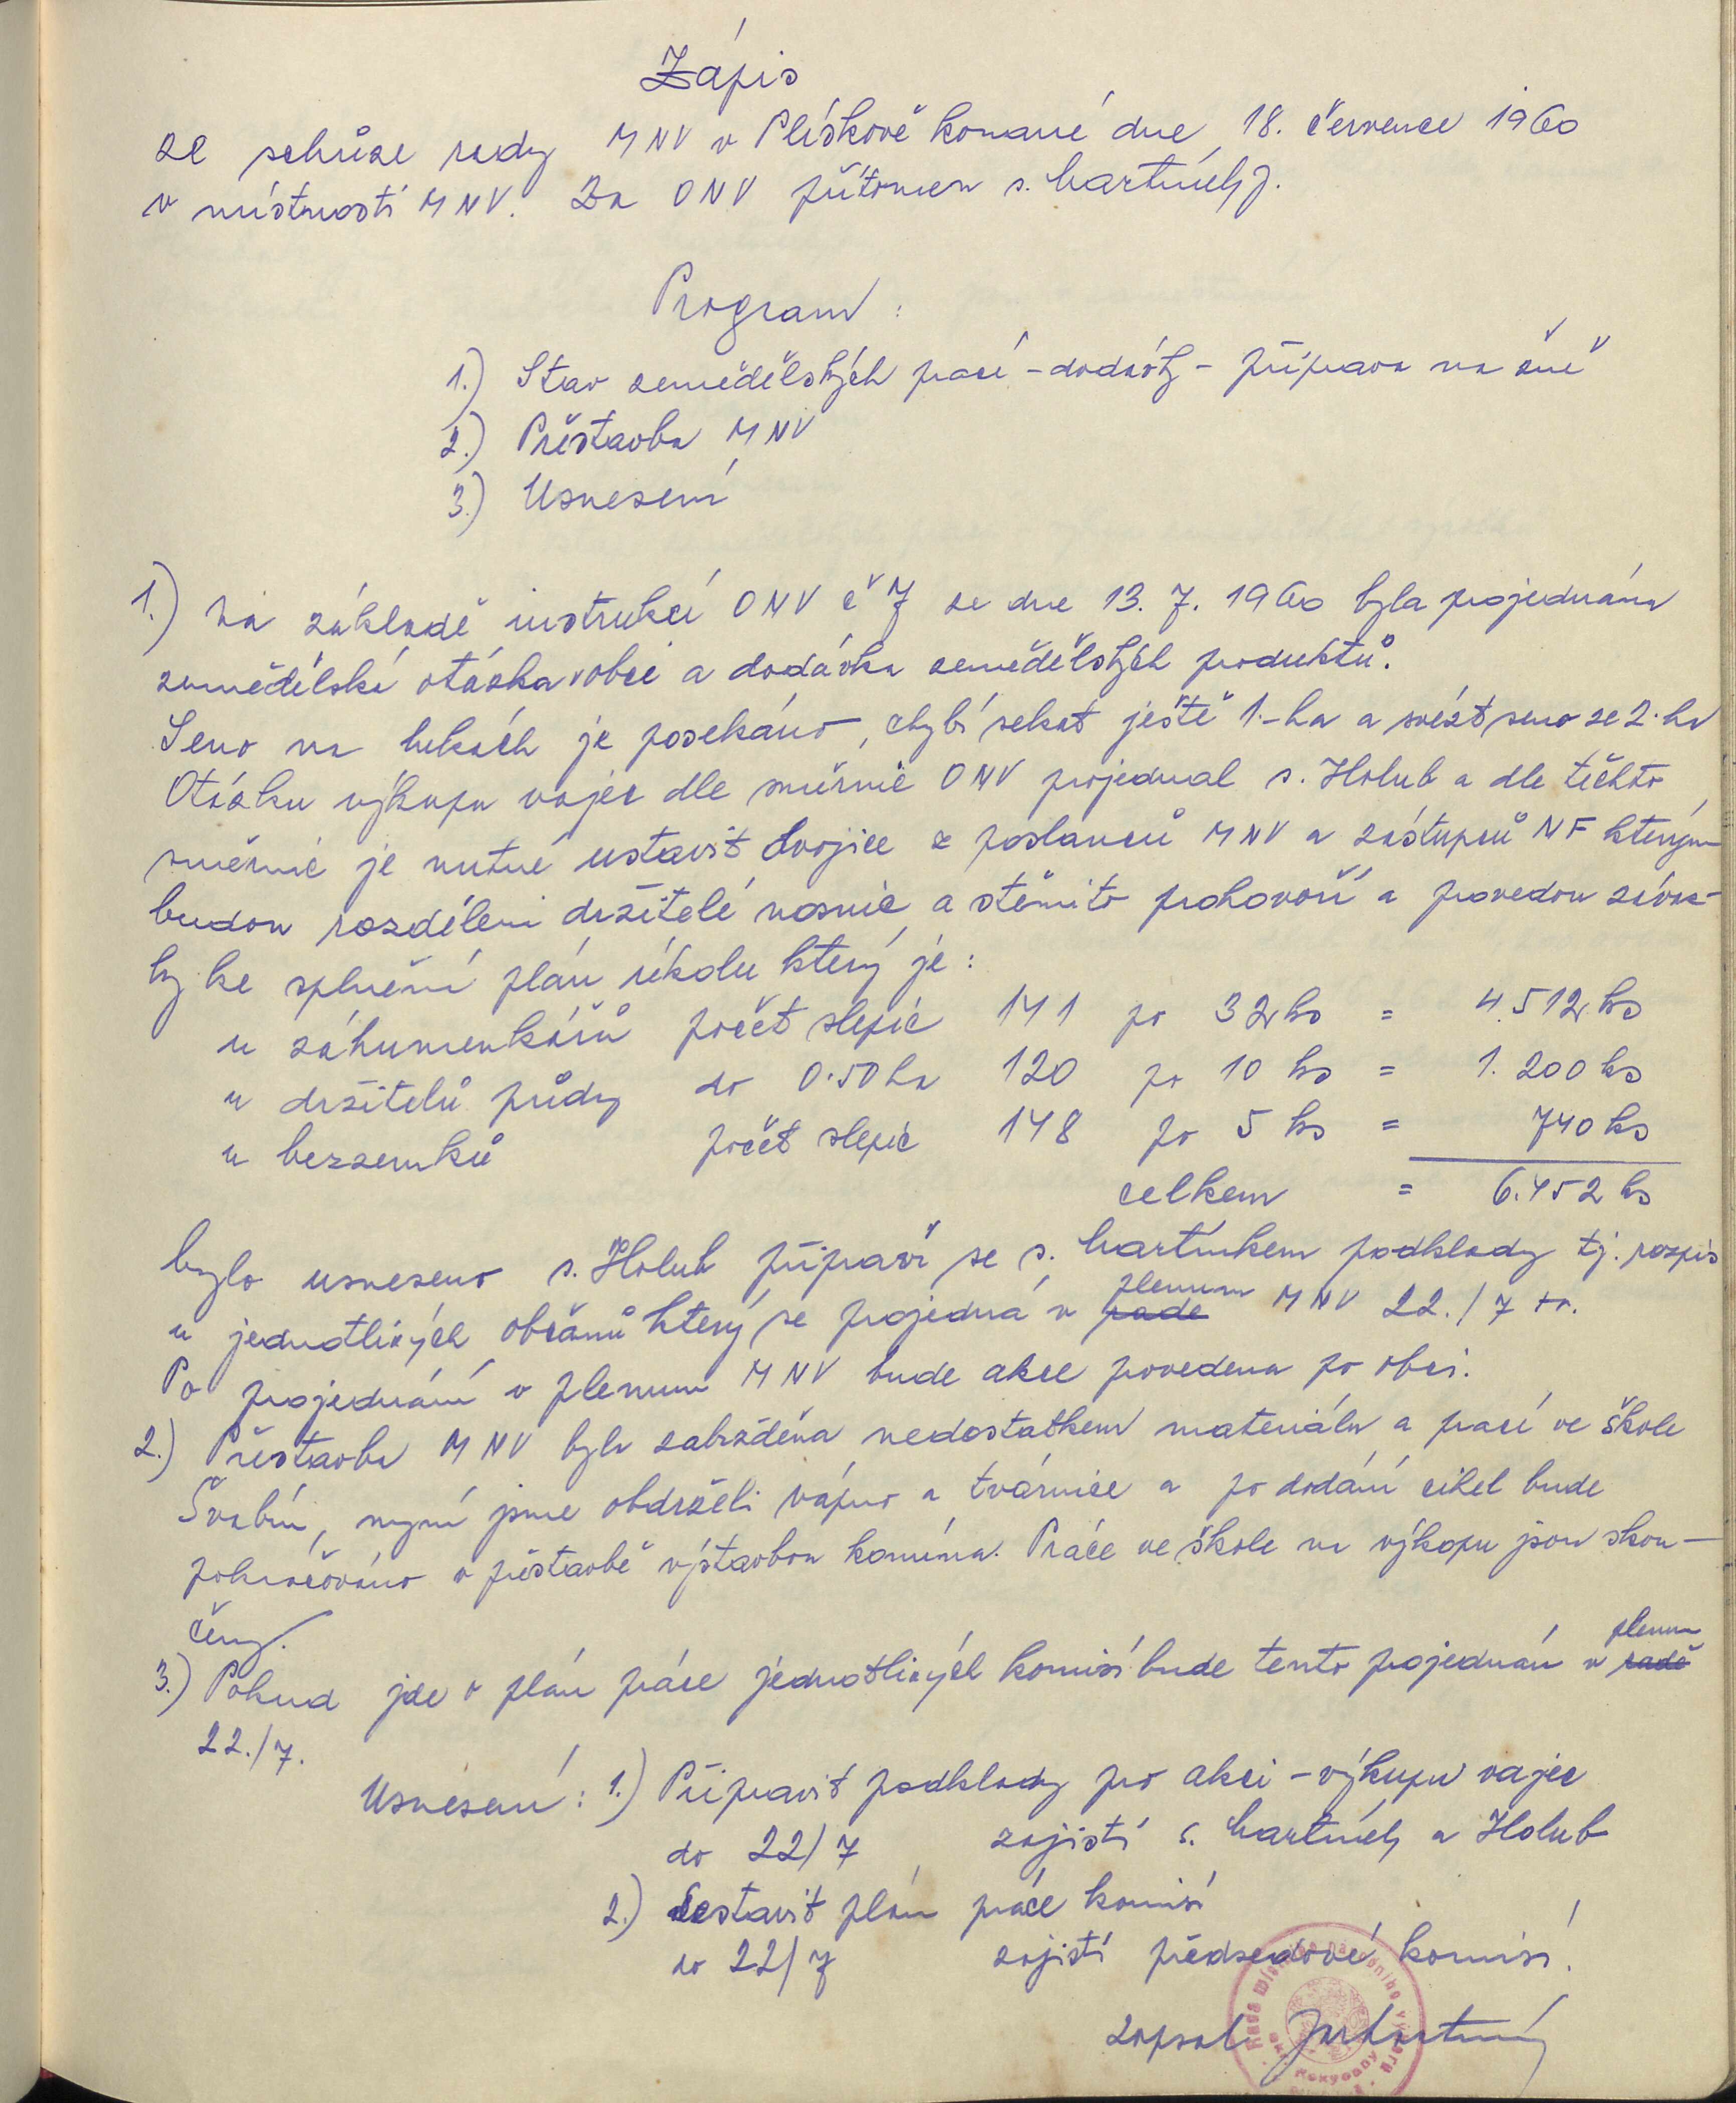 Zápis
ze schůze rady MNV v Plískově konané dne 18. července 1960
v místnosti MNV. Za ONV přítomen s. Martínek J.
Program :
1.) Stav zemědělských prací - dodávky - příprava na žně
2.) Přestavba MNV
3.) Usnesení
1.) Na základě instrukcí ONV č 7 ze dne 13. 7. 1960 byla projednána
zemědělská otázka v obci a dodávka zemědělských produktů.
Seno na lukách je posekáno, chybí sekat ještě 1.- ha a svézt seno ze 2. ha
Otázku výkupu vajec dle směrnic ONV projednal s. Holub a dle těchto
směrnic je nutné ustavit dvojice z poslanců MNV a zástupců NF kterým
budou rozděleni držitelé nosnic a stěmito prohovoří a provedou závaz-
ky ke splnění plán úkolu který je :
u záhumenkářů počet slepic 141 po 32 ks = 4.512 ks
u držitelů půdy do 0.50 ha 120 po 10 ks = 1.200 ks
u bezzemků počet slepic 148 po 5 ks = 740 ks
celkem = 6.452 ks
bylo usneseno s. Holub připraví se s. Martínkem podklady tj. rozpis
u jednotlivých občanů který se projedná v rade plenum MNV 22./7 tr.
Po projednání v plenum MNV bude akce provedena po obci.
2.) Přestavba MNV byla zabržděna nedostatkem materiálu a prací ve škole
Švabín, nyní jsme obdrželi vápno a tvárnice a po dodání cihel bude
pokračováno v přestavbě výstavbou komína. Práce ve škole na výkopu jsou skon-
čeny.
3.) Pokud jde o plán práce jednotlivých komisí bude tento projednán v radě plenum
22./7.
Usnesení : 1.) Připravit podklady pro akci - výkupu vajec
do 22/7 zajistí s. Martínek a Holub
2.) Sestavit plán práce komisí
do 22/7 zajistí předsedové komisí.
zapsal